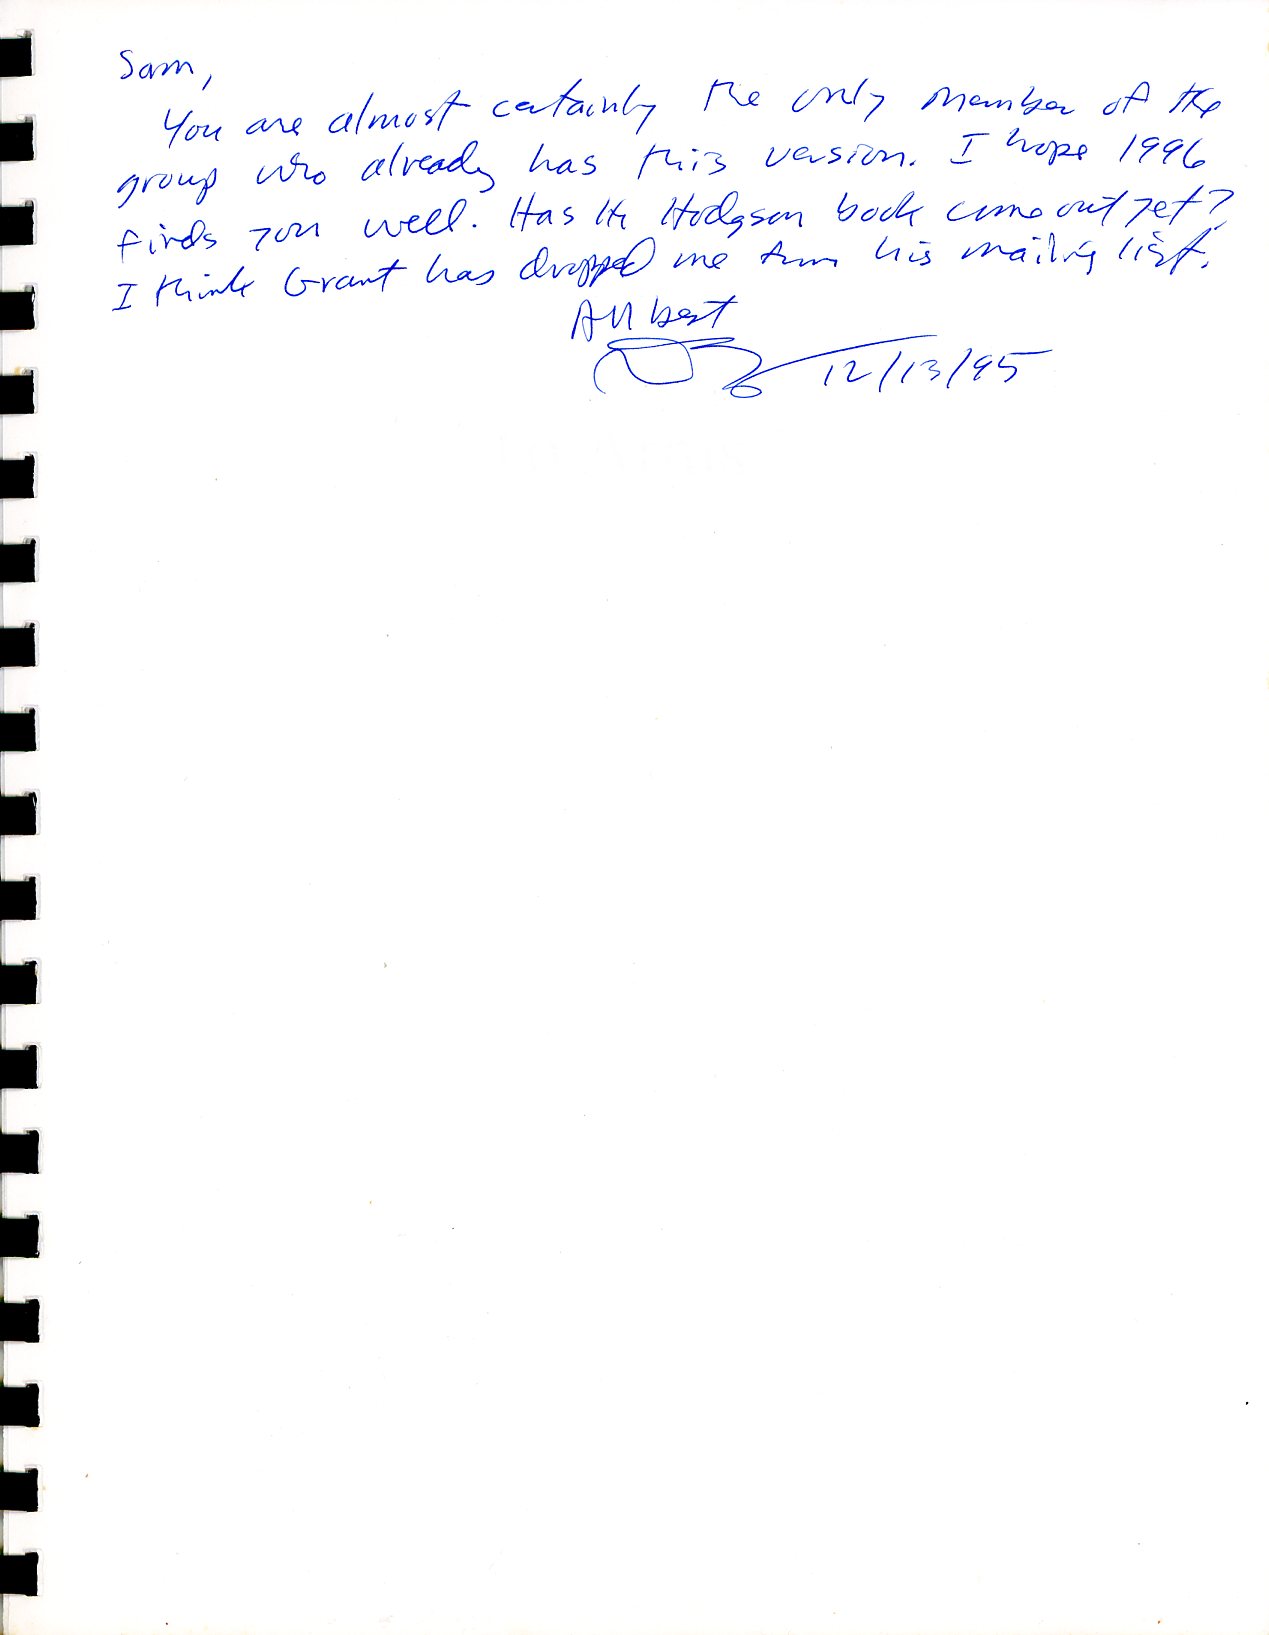 Sam,
You are almost certainly the only member of the
group who already has this version. I hope 1996
finds you well. Has the Hodgson book come out yet?
I think Grant has dropped me from his mailing list.
All best
12/13/95